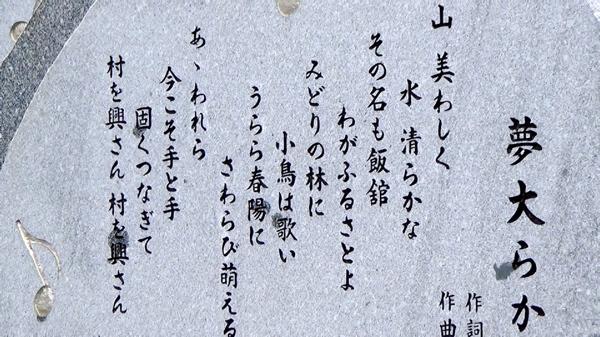 夢大らか
作詞
作曲
山 美わしく
水 清らかな
その名も飯舘
わがふるさとよ
みどりの林に
小鳥は歌い
うらら春陽に
さわらび萌える
あゝわれら
今こそ手と手
固くつなぎて
村を興さん 村を興さん